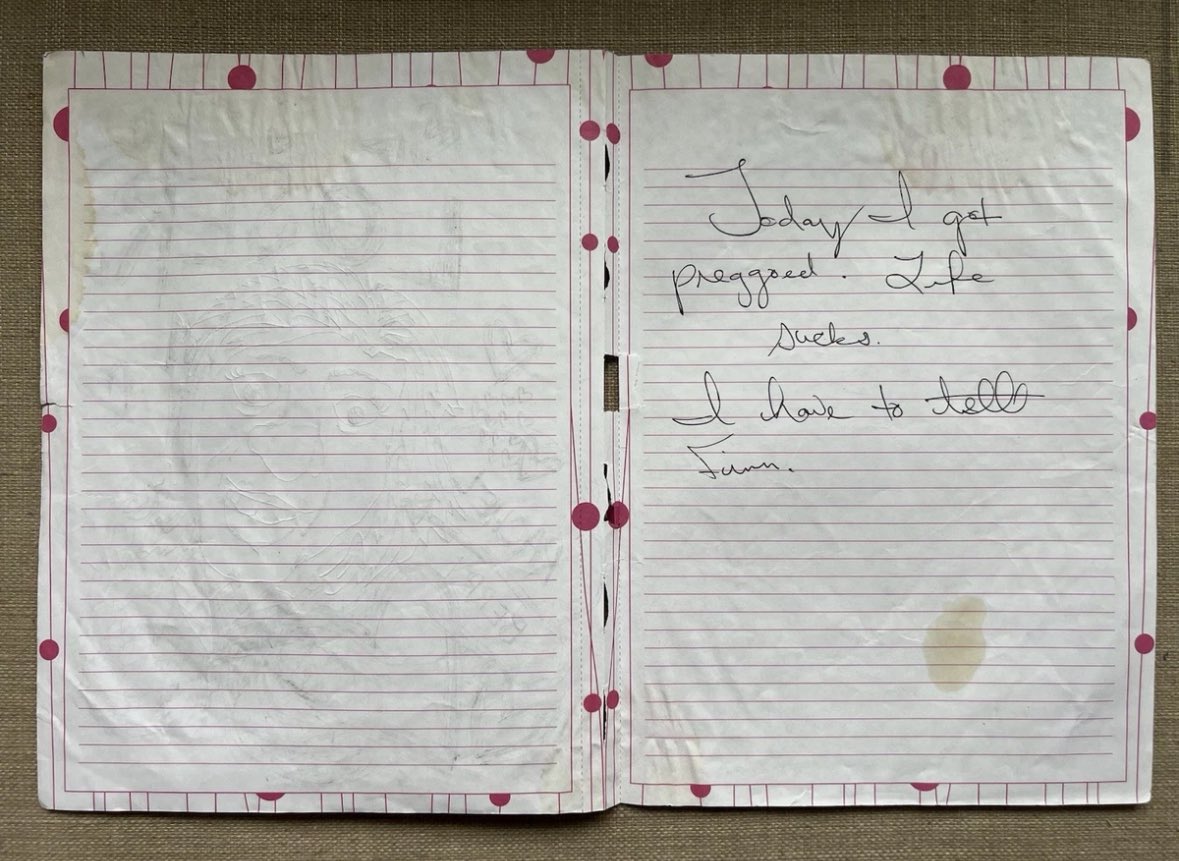 Today I got
preggoed. Life
sucks.
I have to tell
Finn.